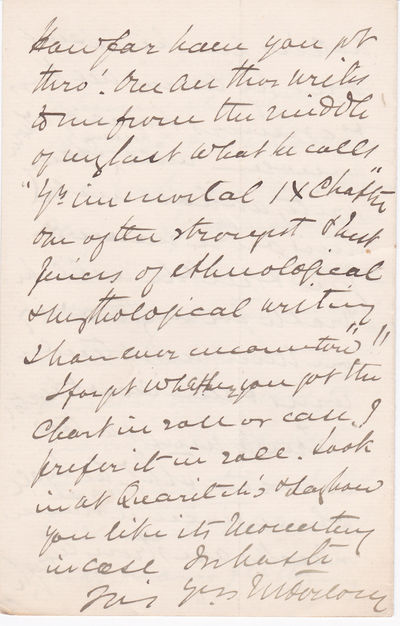 How far have you got
thro'. One author writes
to me from the middle
of my last what he calls
"Yr immortal IX Chaptr
one of the strongest & best
pieces of ethnological
& mythological writing
I have ever encountered"!!
I forget whether you got the
Chart in roll or case. I
prefer it in roll. Look
in at Quaritch's & say how
you like its Mounting
in case In haste
Yrs